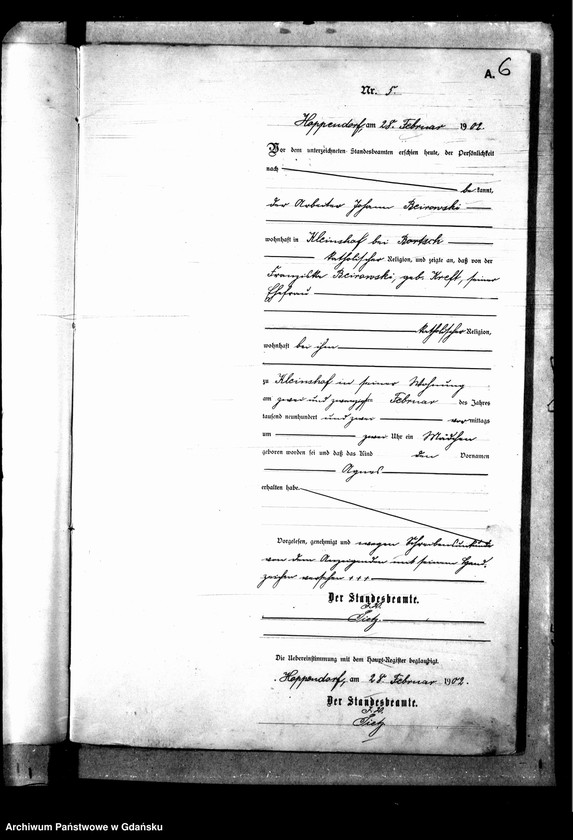 A. 6
Nr. 5.
Hoppendorf, am 28. Februar 1902.
Vor dem unterzeichneten Standesbeamten erschien heute, der Persönlichkeit
nach be kannt,
der Arbeiter Johann Beirowski
wohnhaft in Kleinshof bei Bortsch
katholischer Religion, und zeigte an, daß von der
Franziska Beirowski, geb. Kreft, seiner
Ehefrau
katholischer Religion,
wohnhaft bei ihm
zu Kleinshof in seiner Wohnung
am zwei und zwanzigsten Februar des Jahres
tausend neunhundert und zwei vor mittags
um zwei Uhr ein Mädchen
geboren worden sei und daß das Kind den Vornamen
Agnes
erhalten habe.
Vorgelesen, genehmigt und wegen Schreibensunkunde
von dem Anzeigenden mit seinem Hand-
zeichen versehen +++
Der Standesbeamte.
I. V.
Tietz
Die Uebereinstimmung mit dem Haupt-Register beglaubigt.
Hoppendorf, am 28. Februar 1902.
Der Standesbeamte.
I. V.
Tietz
Archiwum Państwowe w Gdańsku